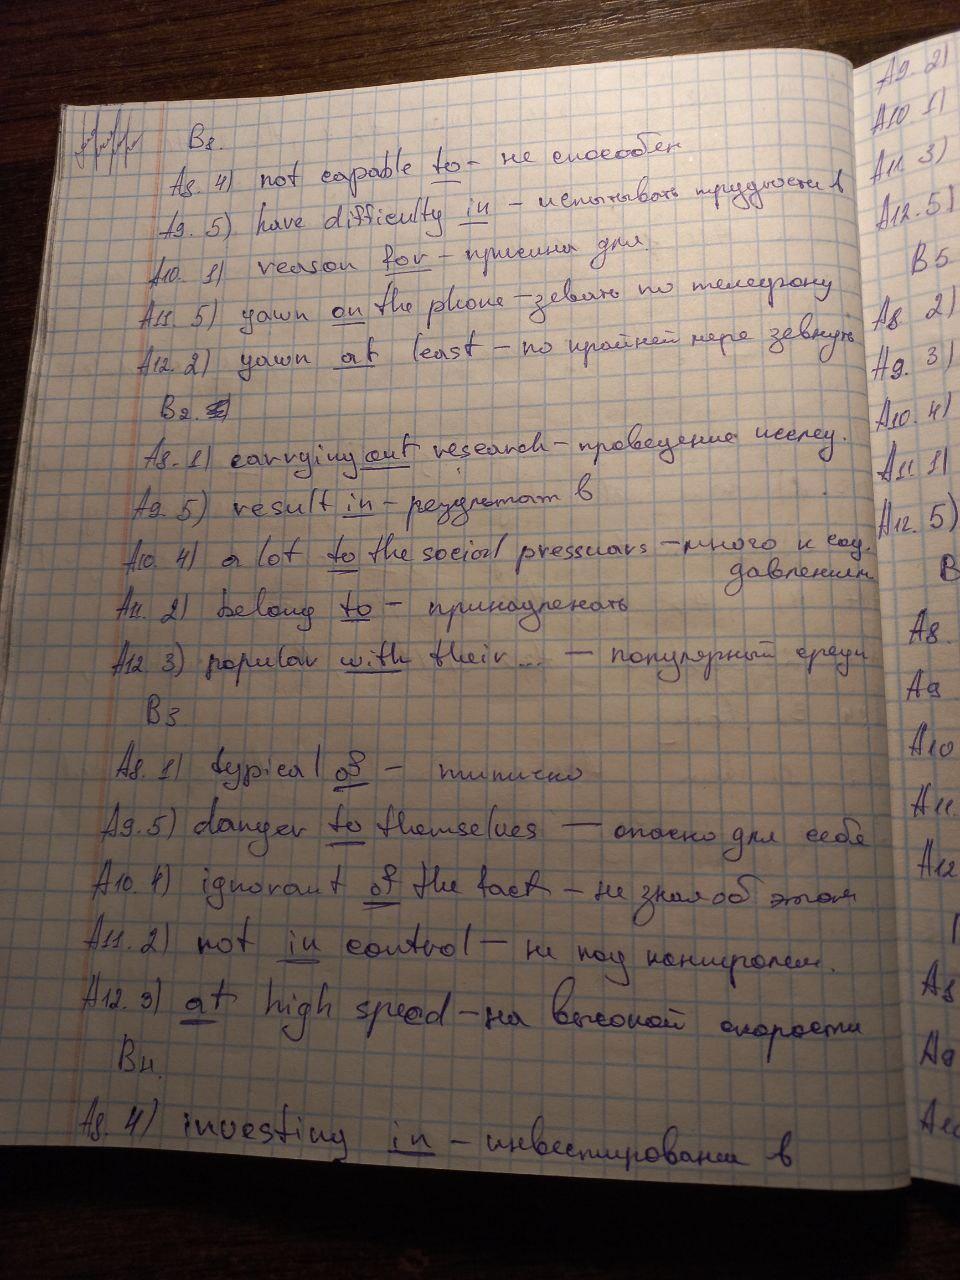 В1.
A8. 4) not capable to - не способен
A9. 5) have difficulty in - испытывать трудности в
A10. 1) reason for - причина для.
A11. 5) yawn on the phone - зевать по телефону
A12. 2) yawn at least - по крайней мере зевнуть
В2.
A8. 1) carrying out research - проведение исслед.
A9. 5) result in - результат в
A10. 4) a lot to the social pressuars - много к соц.
давлениям
A11. 2) belong to - принадлежать
A12 3) popular with their... - популярный среди
В3
A8. 1) typical of - типично
A9. 5) danger to themselves - опасно для себя
A10. 4) ignorant of the fact - не знал об этом
A11. 2) not in control - не под контролем.
A12. 3) at high speed - на высокой скорости
В4.
A8. 4) investing in - инвестировании в
A9. 2)
A10 1)
A11. 3)
A12. 5)
В5
A8 2)
A9. 3)
A10. 4)
A11. 1)
A12. 5)
В
A8.
A9
A10
A11.
A12
A8
A9
A10